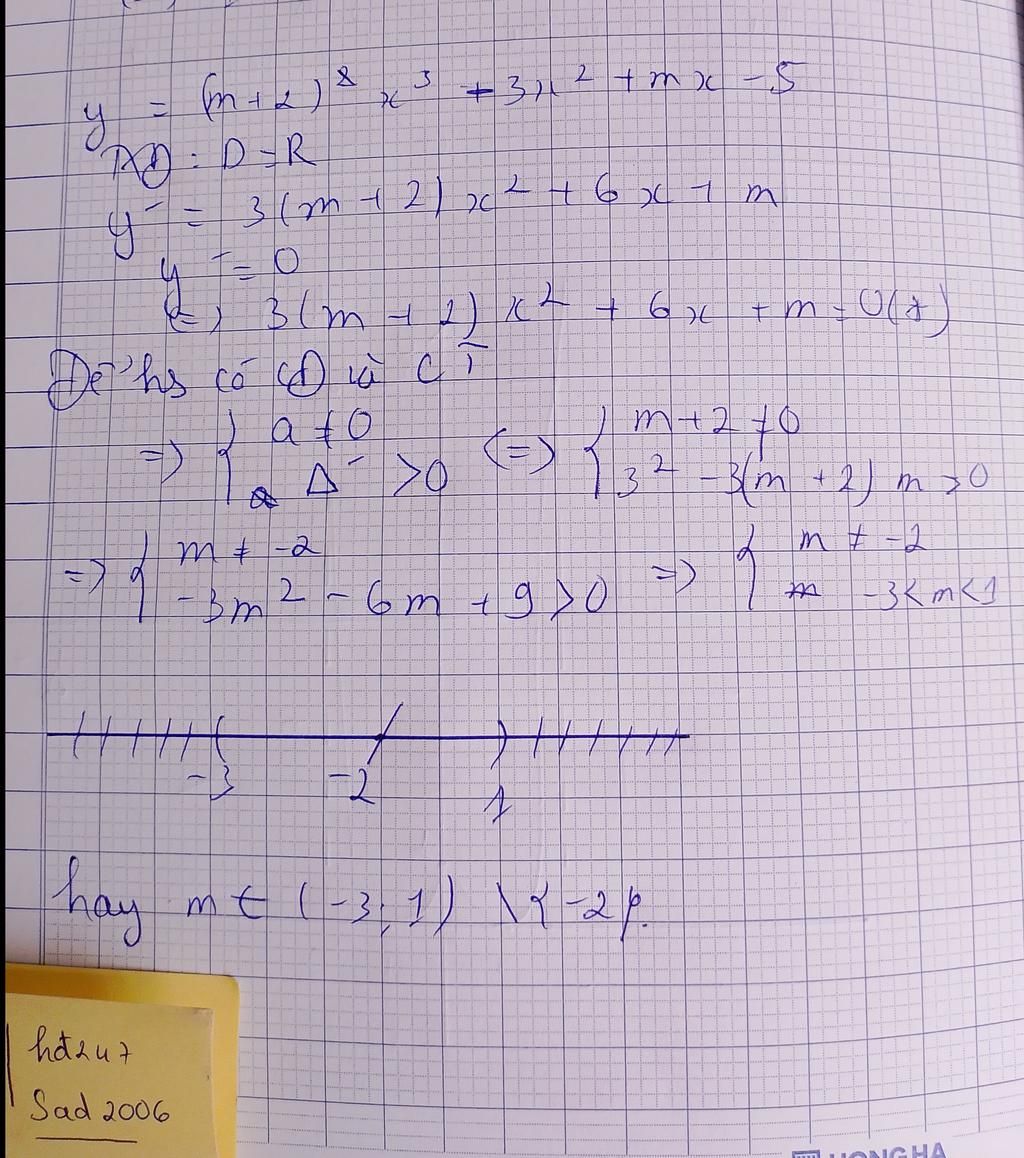 y = (m+2)⁸ x³ + 3x² + mx - 5
TXĐ : D = R
y' = 3(m+2) x² + 6x + m
y' = 0
(=) 3(m+2) x² + 6x + m = 0 (*)
Để hs có CĐ và CT
=> { a ≠ 0 (=) { m+2 ≠ 0
Δ' > 0 3² - 3(m+2) m > 0
=> { m ≠ -2 => { m ≠ -2
-3m² - 6m + 9 > 0 -3 < m < 1
-3 -2 1
hay m ∈ (-3; 1) \ {-2}.
hđ247
Sad 2006
HONG HA